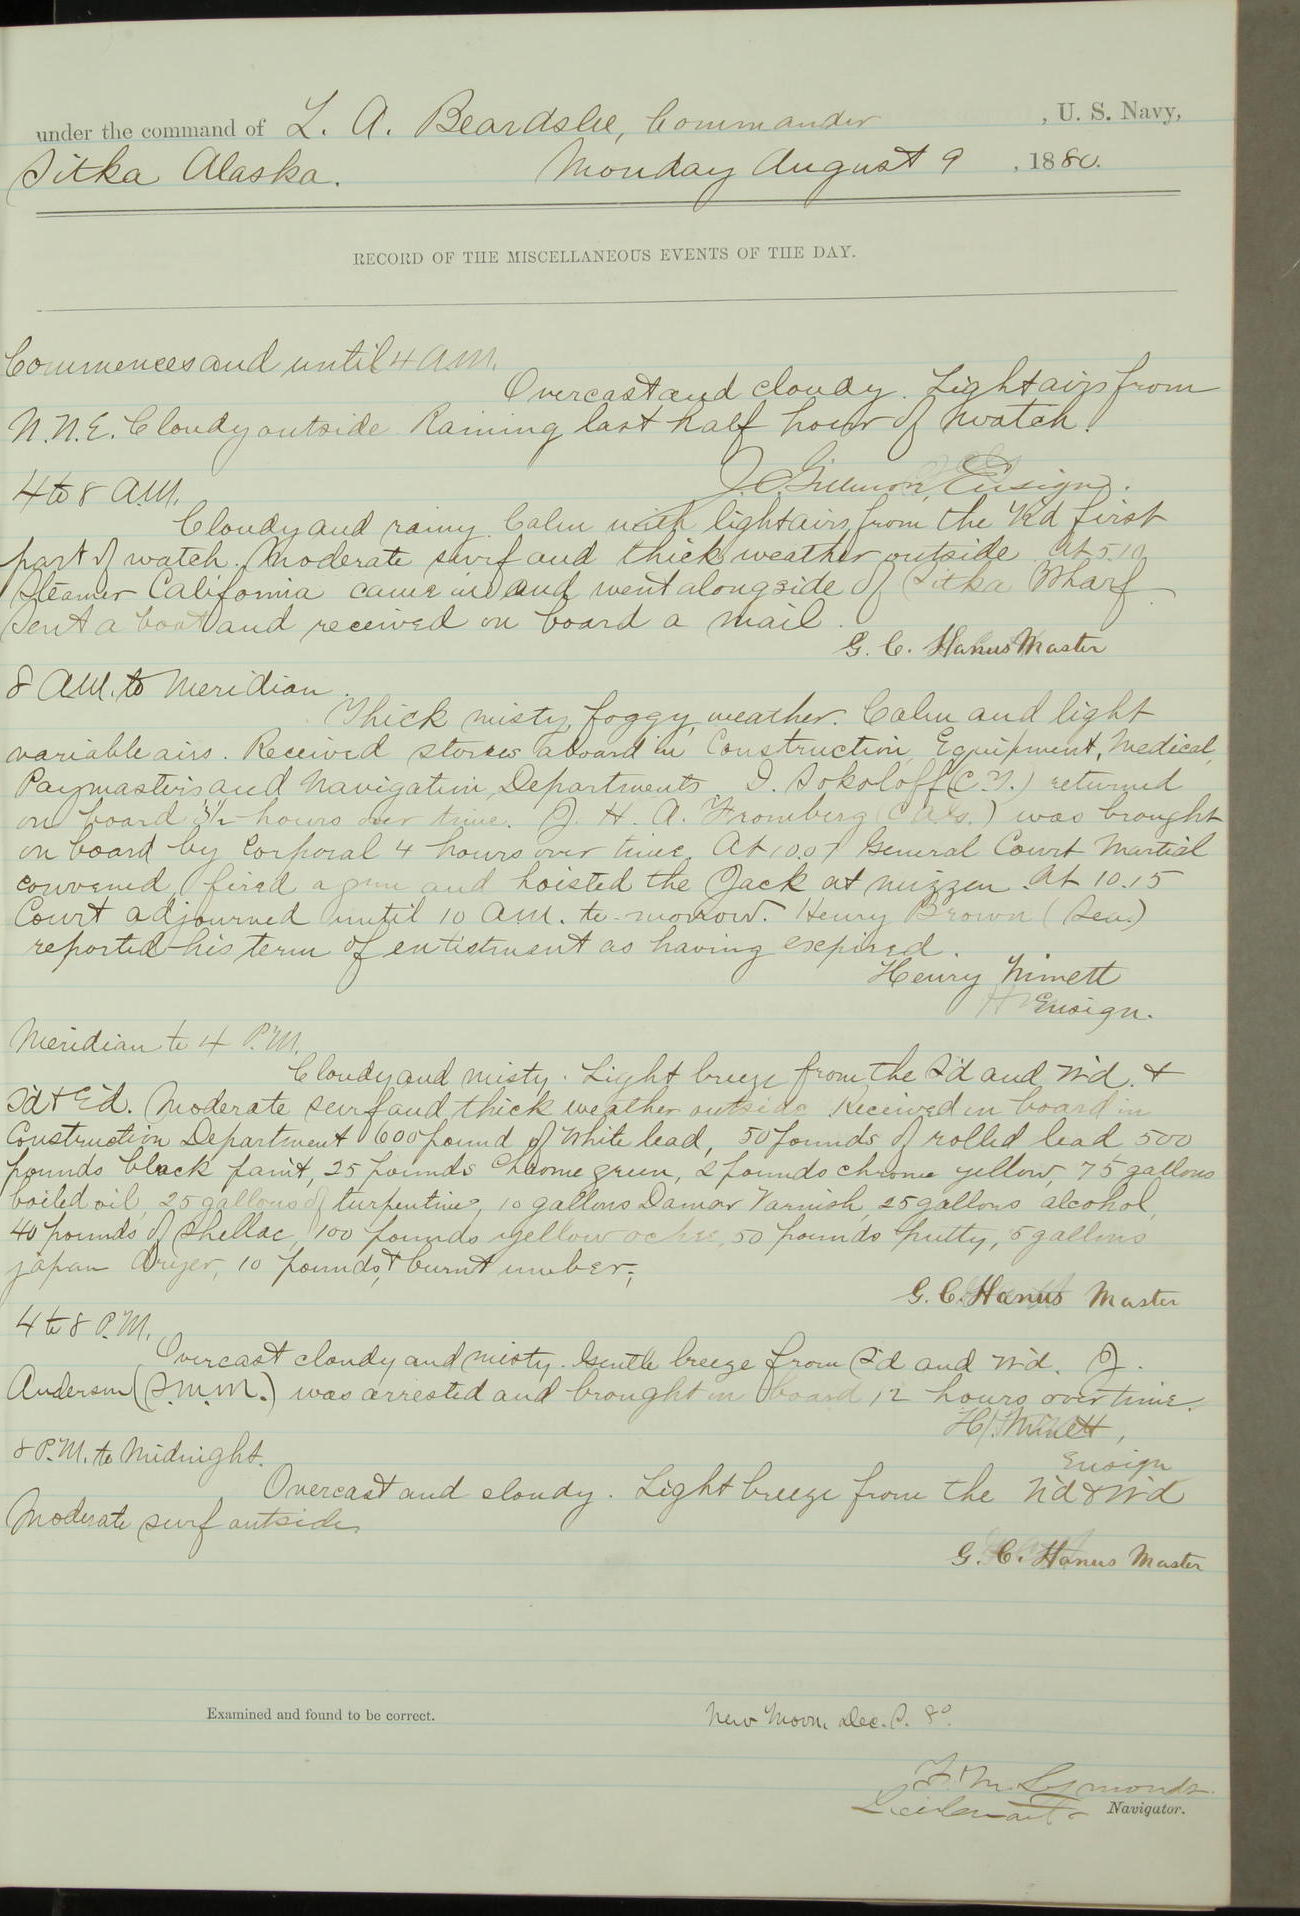 under the command of L. A. Beardslee, Commander , U. S. Navy,
Sitka Alaska. Monday August 9 , 1880.
RECORD OF THE MISCELLANEOUS EVENTS OF THE DAY.
Commences and until 4 A.M.
Overcast and cloudy. Light airs from
N.N.E. Cloudy outside Raining last half hour of watch.
J. C. Gillmor, Ensign.
4 to 8 A.M.
Cloudy and rainy. Calm with light airs from the N'd first
part of watch. Moderate surf and thick weather outside. At 5.10
Steamer California came in and went alongside of Sitka Wharf
Sent a boat and received on board a mail.
G. C. Hanus Master
8 A.M. to Meridian.
Thick misty, foggy, weather. Calm and light
variable airs. Received stores aboard in Construction, Equipment, Medical,
Paymasters and Navigation, Departments. I. Sokoloff (C.Y.) returned
on board hours over time. J. H. A. Fromberg was brought
on board by Corporal 4 hours over time. At 10.07 General Court Martial
convened, fired a gun and hoisted the Jack at mizzen. At 10.15
Court adjourned until 10 A.M. to-morrow. Henry Brown (Sea.)
reported his term of entistment as having expired.
Henry Minett
Ensign.
Meridian to 4 P.M.
Cloudy and misty. Light breeze from the S'd and W'd. &
S'd & E'd. Moderate surf and thick weather outside Received on board in
Construction Department 600 pound of White lead, 50 pounds of rolled lead 500
pounds black paint, 25 pounds Chrome green, 2 pounds chrome yellow, 75 gallons
boiled oil, 25 gallons of turpentine, 10 gallons Damar Varnish, 25 gallons alcohol,
40 pounds of Shellac, 100 pounds yellow ochre, 50 pounds putty, 5 gallons
japan dryer, 10 pounds burnt umber;
G. C. Hanus Master
4 to 8 P.M.
Overcast cloudy and misty. Gentle breeze from S'd and W'd. J.
Anderson (S.M.M.) was arrested and brought on board 12 hours over time.
H. Minett,
Ensign
8 P.M. to Midnight.
Overcast and cloudy. Light breeze from the N'd & W'd
Moderate surf outside
G. C. Hanus Master
Examined and found to be correct. New Moon, Dec. S. 8°.
F. M. Symonds
Lieutenant Navigator.